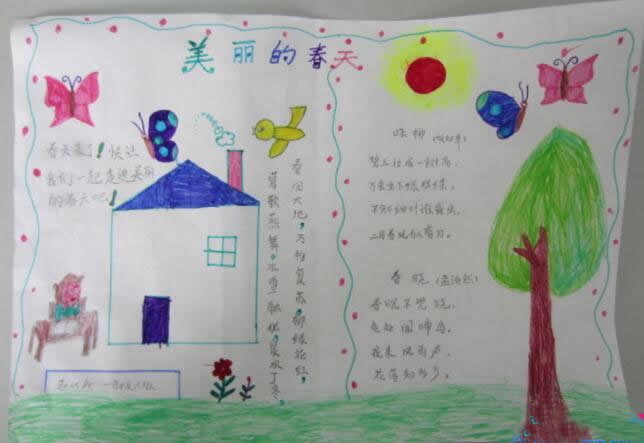 美丽的春天
春天来了！快让
我们一起走进美丽
的春天吧！
春回大地，万物复苏，柳绿花红，
莺歌燕舞。冰雪融化，
咏柳（贺知章）
碧玉妆成一树高，
万条垂下绿丝绦。
不知细叶谁裁出，
二月春风似剪刀。
春晓（孟浩然）
春眠不觉晓，
处处闻啼鸟。
夜来风雨声，
花落知多少。